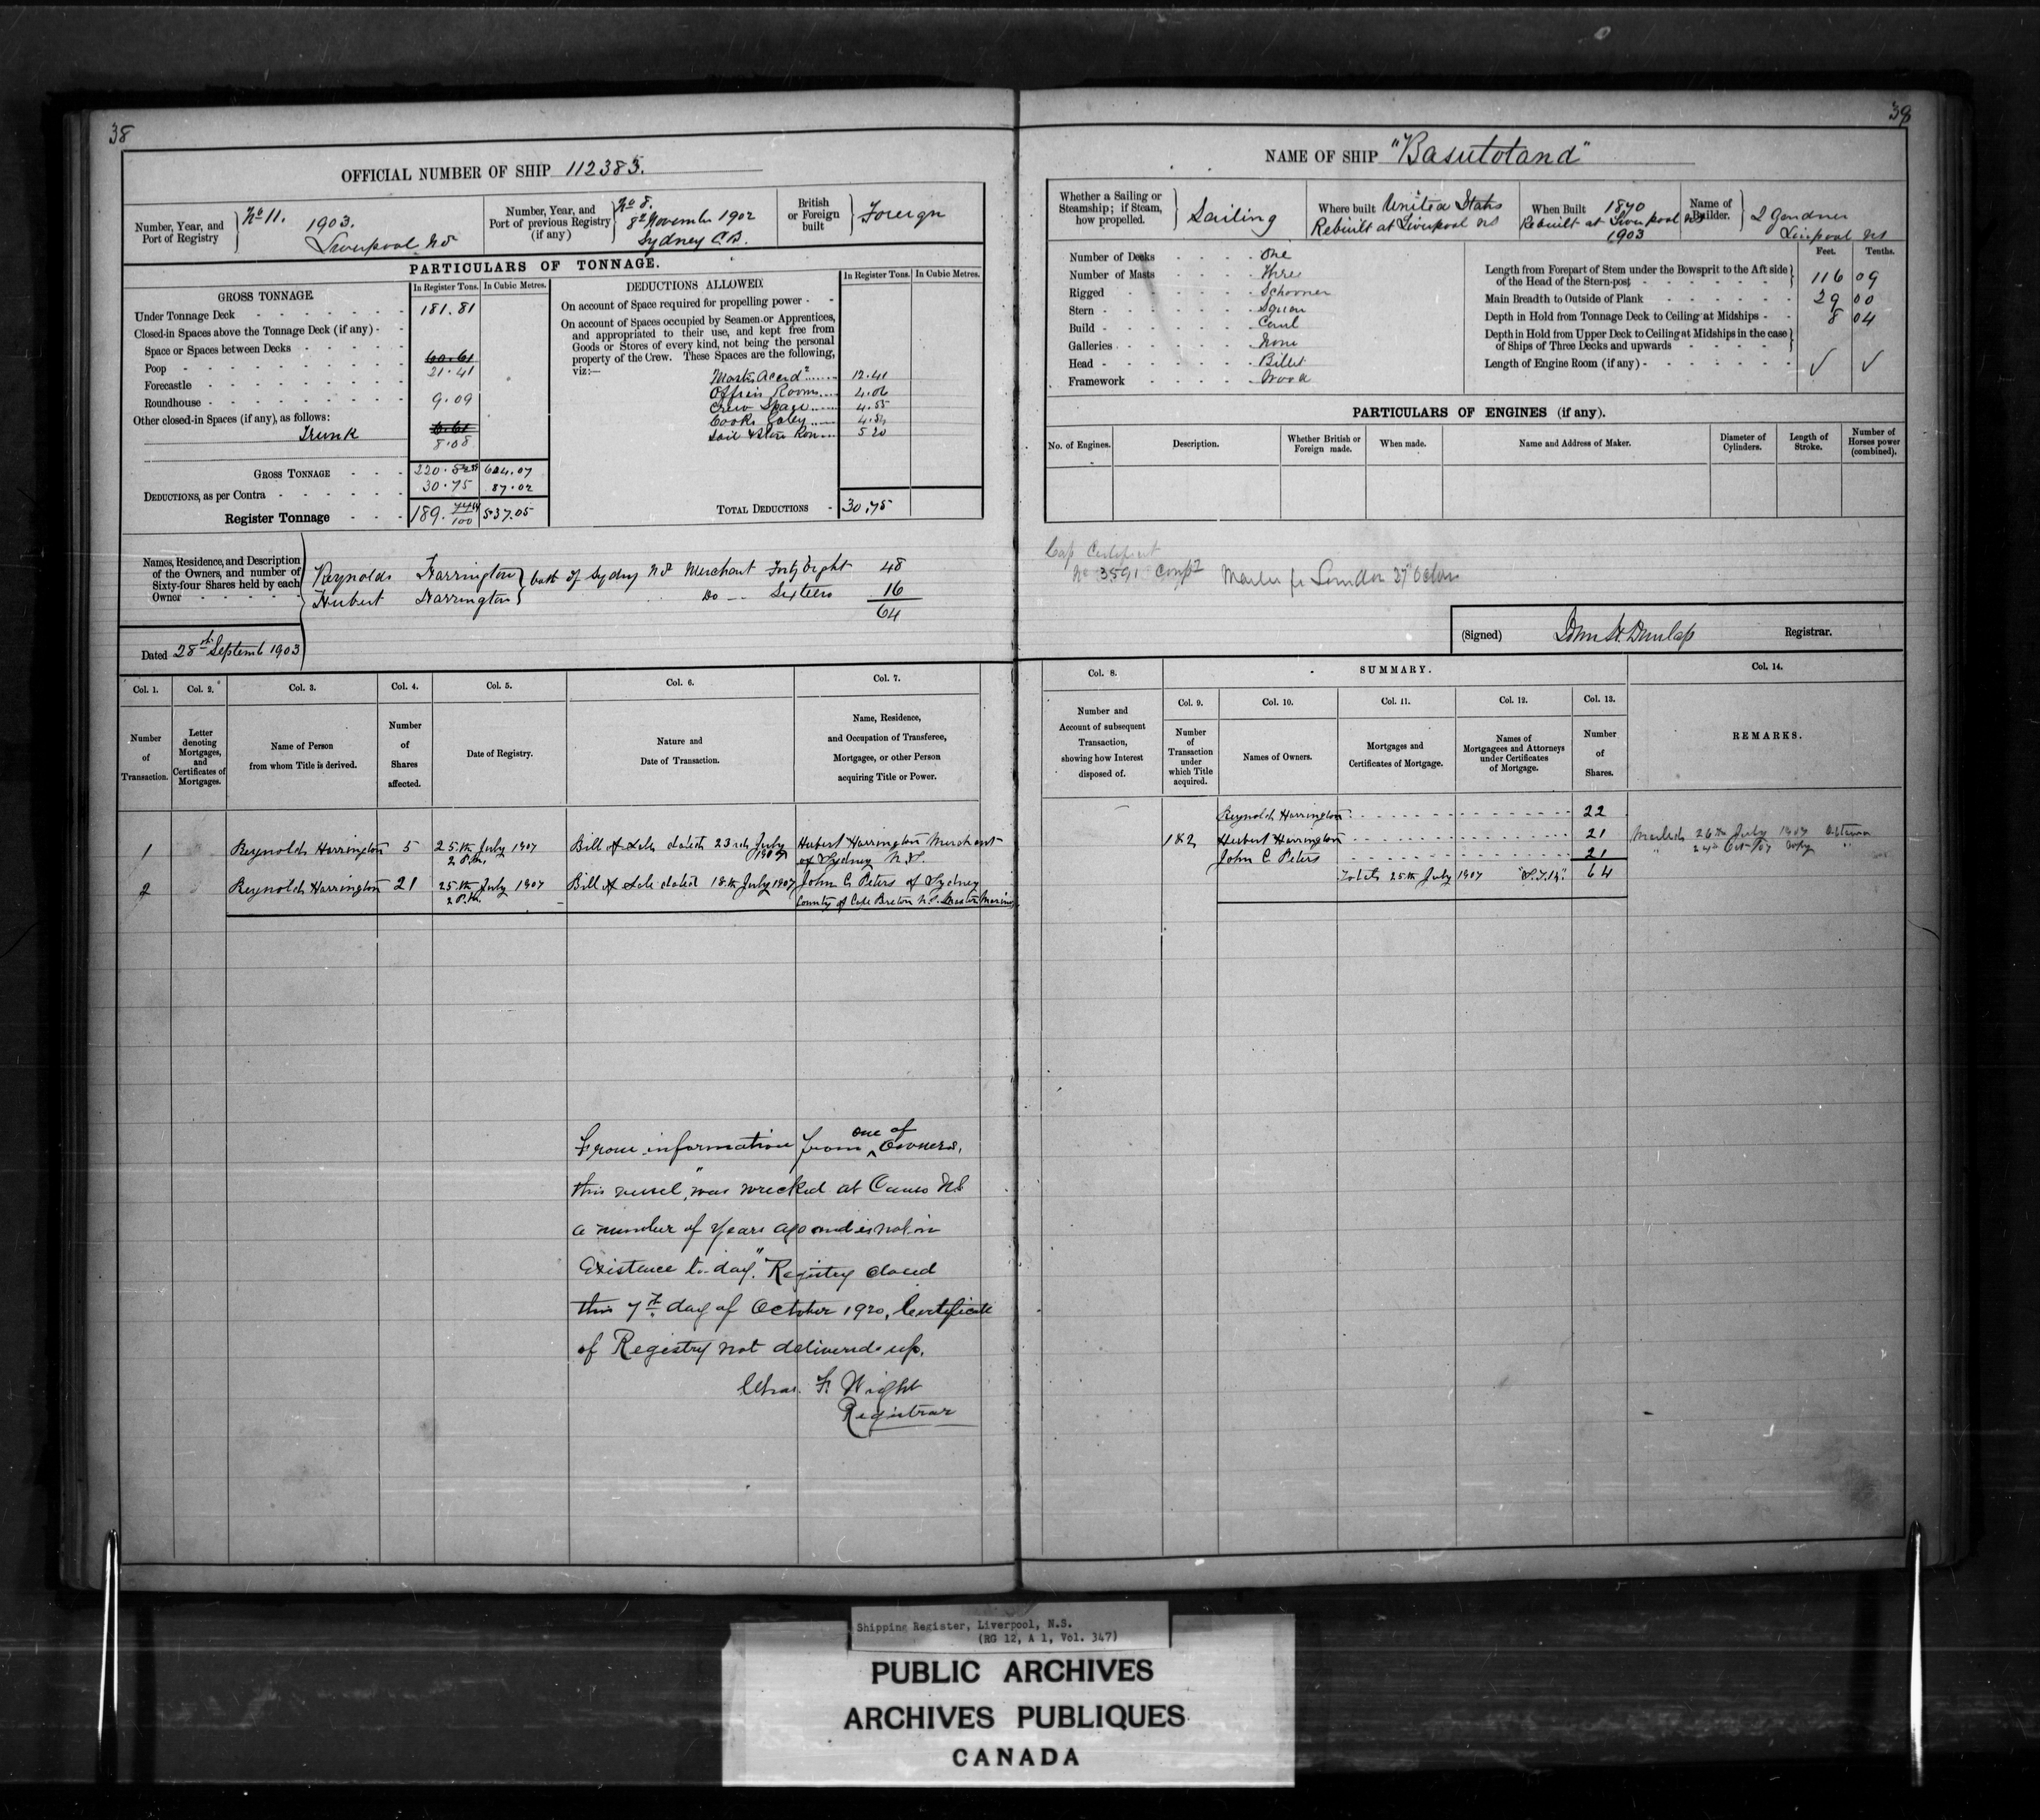 38
OFFICIAL NUMBER OF SHIP 112383.
Number, Year, and Port of Registry
No 11. 1903.
Liverpool N S
Number, Year, and Port of previous Registry (if any)
No 8.
8th November 1902
Sydney C.B.
British or Foreign built
Foreign
PARTICULARS OF TONNAGE.
GROSS TONNAGE.
In Register Tons.
In Cubic Metres.
Under Tonnage Deck 181.81
Closed-in Spaces above the Tonnage Deck (if any)
Space or Spaces between Decks
Poop 21.41
Forecastle
Roundhouse 9.09
Other closed-in Spaces (if any), as follows:
Trunk 8.08
GROSS TONNAGE 220. 624.07
DEDUCTIONS, as per Contra 30.75 87.02
Register Tonnage 189. 537.05
DEDUCTIONS ALLOWED.
In Register Tons.
In Cubic Metres.
On account of Space required for propelling power
On account of Spaces occupied by Seamen or Apprentices,
and appropriated to their use, and kept free from
Goods or Stores of every kind, not being the personal
property of the Crew. These Spaces are the following,
viz:—
Masters Accod 12.41
Officers Room 4.06
Crew Space 4.55
Cooks Galley
Sail & Store Room 5.20
TOTAL DEDUCTIONS 30.75
Names, Residence, and Description
of the Owners, and number of
Sixty-four Shares held by each
Owner
Reynolds Harrington both of Sydney N S Merchant Forty Eight 48
Hubert Harrington Do Sixteen 16
64
Dated 28th Septemb 1903
Col. 1. Col. 2. Col. 3. Col. 4. Col. 5. Col. 6. Col. 7.
Number of Transaction.
Letter denoting Mortgages, and Certificates of Mortgages.
Name of Person from whom Title is derived.
Number of Shares affected.
Date of Registry.
Nature and Date of Transaction.
Name, Residence, and Occupation of Transferee, Mortgagee, or other Person acquiring Title or Power.
1 Reynolds Harrington 5 25th July 1907 Bill of Sale dated 23rd July Hubert Harrington Merchant
2 P.M. of Sydney N.S.
2 Reynolds Harrington 21 25th July 1907 Bill of Sale dated 18th July 1907 John C. Peters of Sydney
2 P.M. County of Cape Breton N.S. Master Mariner
From information from one of Owners,
this vessel, "was wrecked at Canso NS
a number of years ago and is not in
Existence to-day." Registry closed
this 7th day of October 1920, Certificate
of Registry not delivered up.
Chas. F. Wight
Registrar
39
NAME OF SHIP "Basutoland"
Whether a Sailing or Steamship; if Steam, how propelled.
Sailing
Where built United States
Rebuilt at Liverpool NS
When Built 1890
Rebuilt at Liverpool NS
1903
Name of Builder.
Gardner
Liverpool NS
Number of Decks One
Number of Masts Three
Rigged Schooner
Stern Square
Build Carvel
Galleries None
Head Billet
Framework Wood
Feet. Tenths.
Length from Forepart of Stem under the Bowsprit to the Aft side
of the Head of the Stern-post 116 09
Main Breadth to Outside of Plank 29 00
Depth in Hold from Tonnage Deck to Ceiling at Midships 8 04
Depth in Hold from Upper Deck to Ceiling at Midships in the case
of Ships of Three Decks and upwards
Length of Engine Room (if any)
PARTICULARS OF ENGINES (if any).
No. of Engines.
Description.
Whether British or Foreign made.
When made.
Name and Address of Maker.
Diameter of Cylinders.
Length of Stroke.
Number of Horses power (combined).
No 3591
(Signed) John H. Dunlap Registrar.
Col. 8. SUMMARY. Col. 14.
Col. 9. Col. 10. Col. 11. Col. 12. Col. 13.
Number and Account of subsequent Transaction, showing how Interest disposed of.
Number of Transaction under which Title acquired.
Names of Owners.
Mortgages and Certificates of Mortgage.
Names of Mortgagees and Attorneys under Certificates of Mortgage.
Number of Shares.
REMARKS.
Reynolds Harrington 22
1&2 Hubert Harrington 21
John C Peters 21
Totals 25th July 1907 64
26th July 1907
Shipping Register, Liverpool, N.S.
(RG 12, A 1, Vol. 347)
PUBLIC ARCHIVES
ARCHIVES PUBLIQUES
CANADA